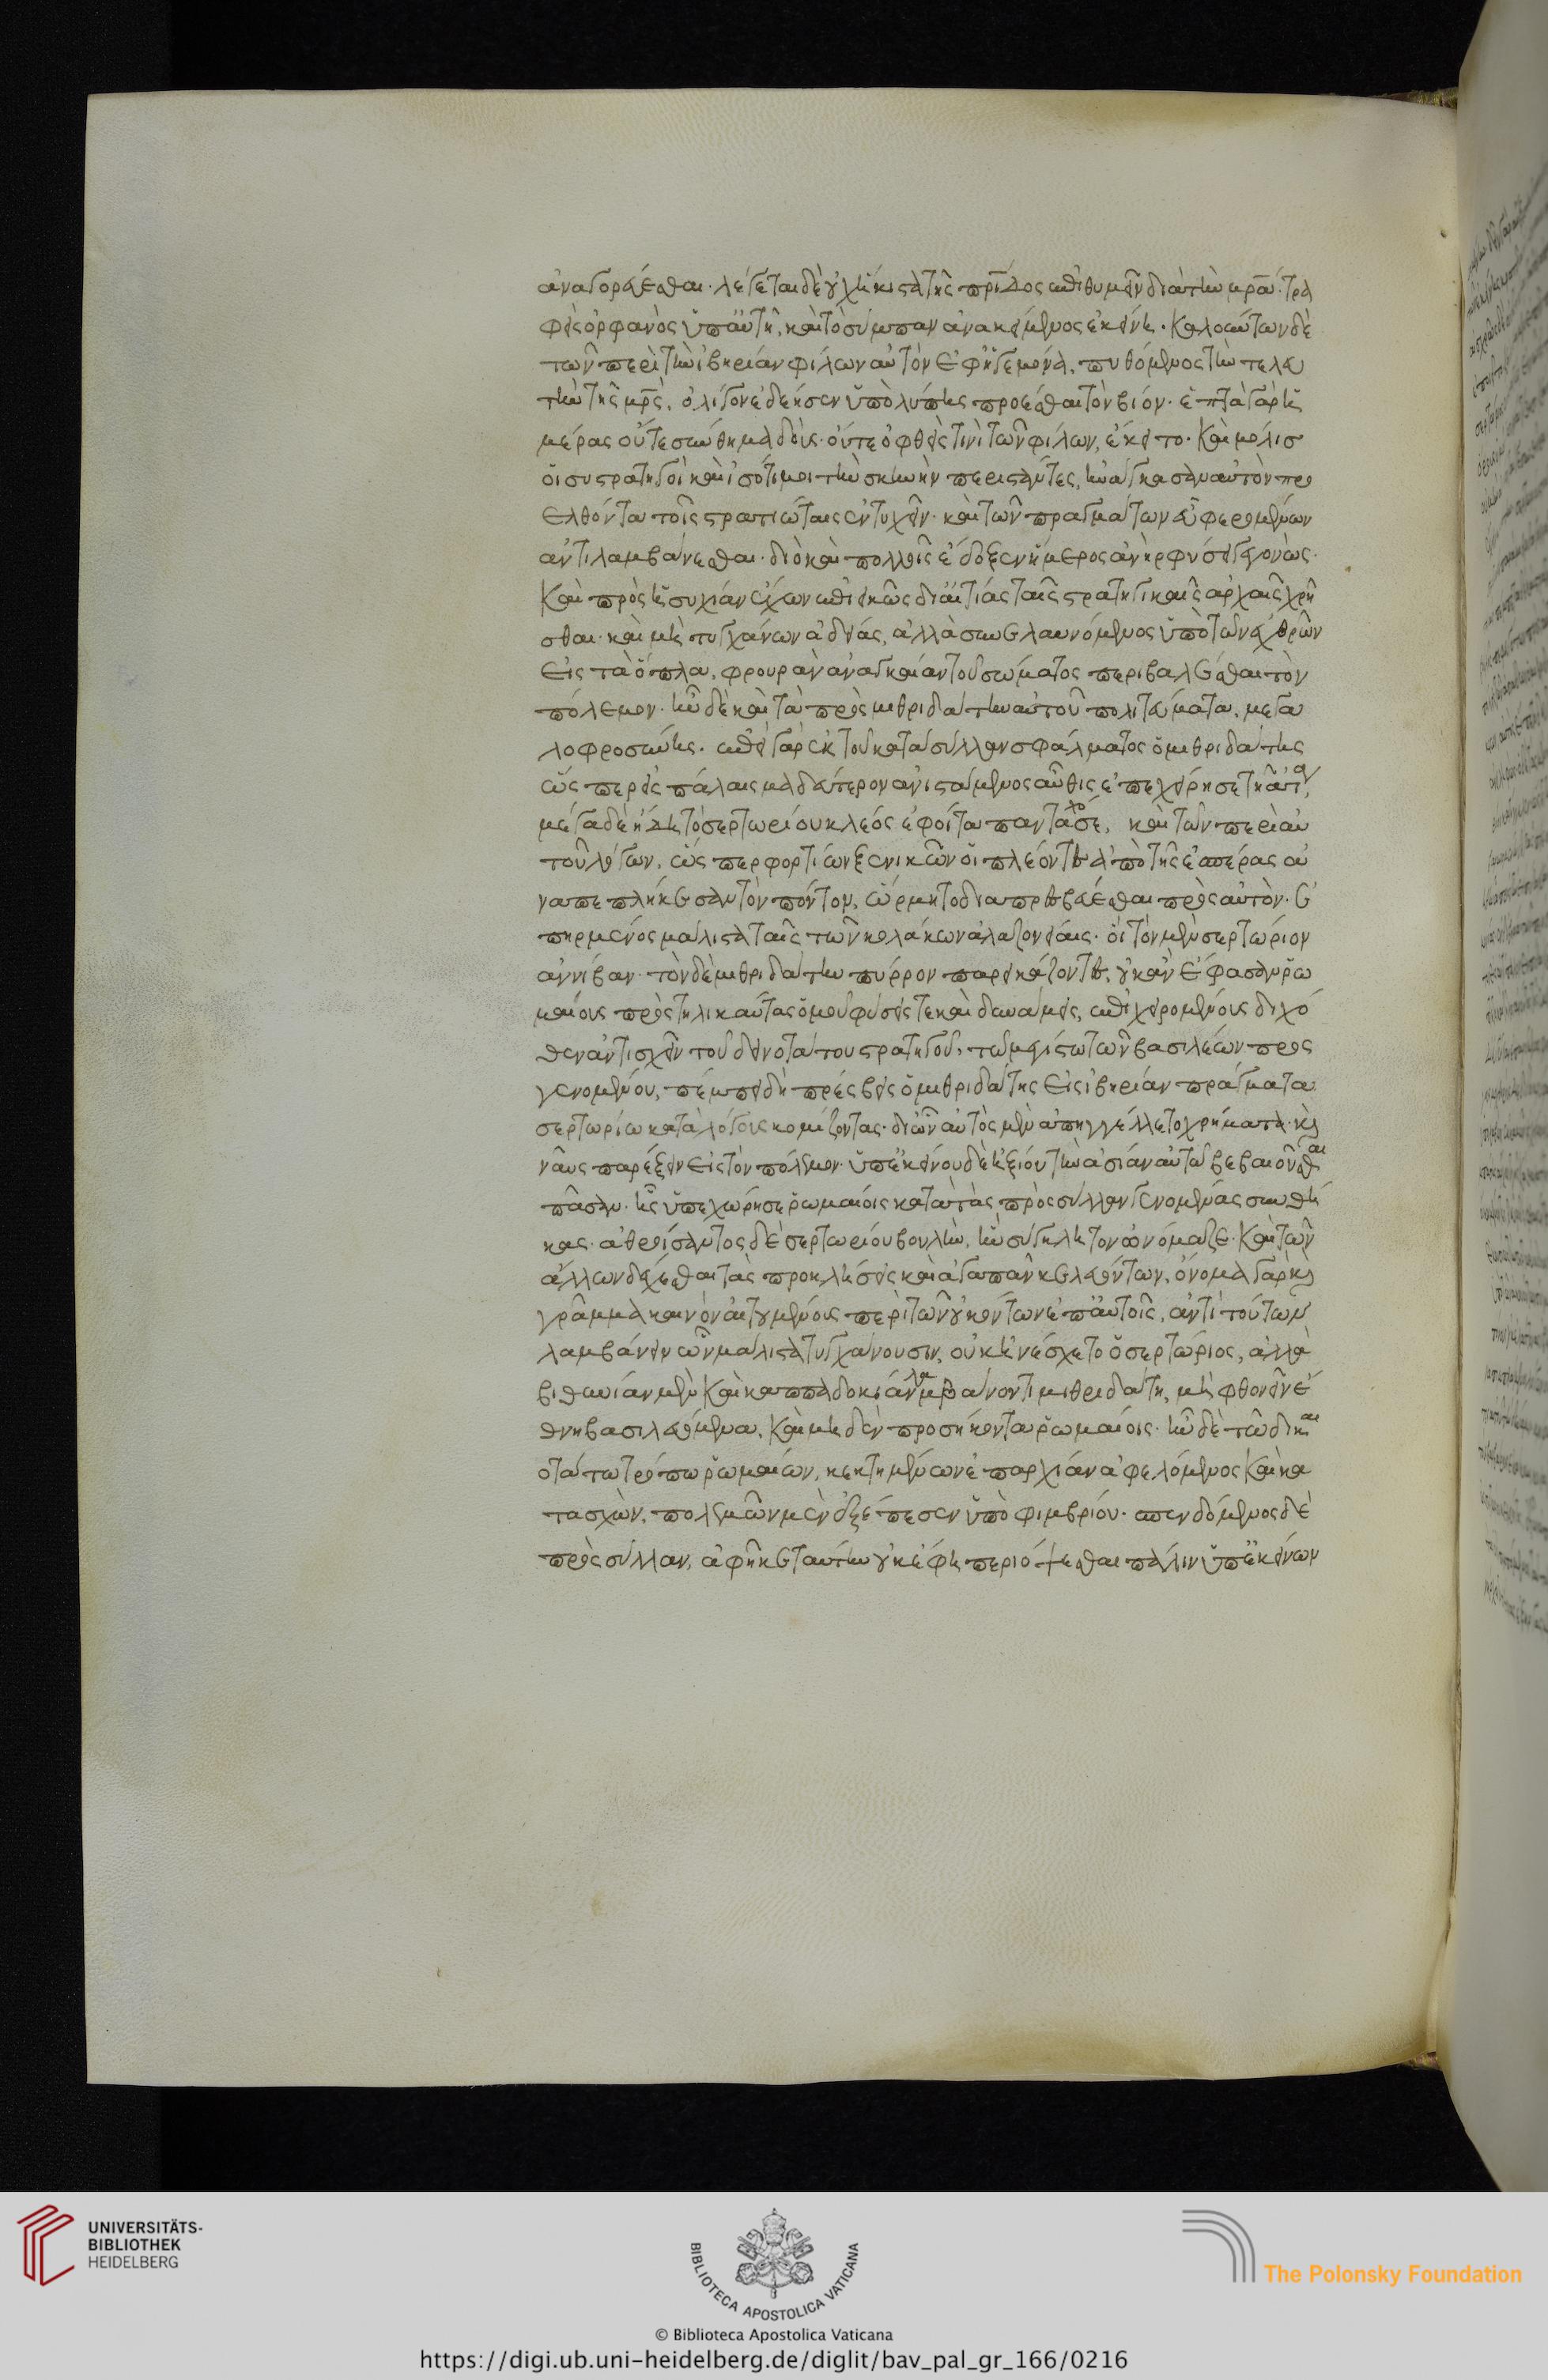 ἀναγορεύεσθαι. λέγεται δὲ οὐχ ἥκιστα τῆς πρίδος ἐπιθυμεῖν διὰ τὴν μρα. τρα
φεὶς ὀρφανὸς ὑπ' αὐτῆ, καὶ τὸ σύμπαν ἀνακείμενος ἐκείνη. καλούντων δὲ
τῶν περὶ τὴν ἰβηρίαν φίλων αὐτὸν ἐφ' ἡγεμονία, πυθόμενος τὴν τελευ
τὴν τῆς μρς, ὀλίγον ἐδέησεν ὑπὸ λύπης προέσθαι τὸν βίον. ἑπτὰ γὰρ ἡ
μέρας οὔτε σύνθημα δοὺς. οὔτε ὀφθεὶς τινὶ τῶν φίλων, ἔκειτο. καὶ μόλισ
οἱ συστρατηγοὶ καὶ ἰσότιμοι τὴν σκηνὴν περιστάντες, ἠνάγκασαν αὐτὸν προ
ελθόντα τοῖς στρατιώταις ἐντυχεῖν. καὶ τῶν πραγμάτων εὖ φερομένων
ἀντιλαμβάνεσθαι. διὸ καὶ πολλοῖς ἔδοξεν ἥμερος ἀνὴρ φύσει γεγονὼς.
καὶ πρὸς ἡσυχίαν ἔχων ἐπιεικῶς δι' αἰτίας ταῖς στρατηγικαῖς ἀρχαῖς χρῆ
σθαι. καὶ μὴ τυγχάνων ἀδείας, ἀλλὰ συνελαυνόμενος ὑπὸ τῶν ἐχθρῶν
εἰς τὰ ὅπλα, φρουρὰν ἀναγκαίαν τοῦ σώματος περιβαλέσθαι τὸν
πόλεμον. ἦν δὲ καὶ τὰ πρὸς μιθριδάτην αὐτοῦ πολιτεύματα, μεγα
λοφροσύνης. ἐπεὶ γὰρ ἐκ τοῦ κατὰ σύλλαν σφάλματος ὁ μιθριδάτης
ὥσπερ εἰς πάλαισμα δεύτερον ἀνιστάμενος αὖθις ἐπεχείρησε τῆ ἀσία,
μέγα δὲ ἤδη τὸ σερτωρίου κλέος ἐφοίτα πανταχόσε, καὶ τῶν περὶ αὐ
τοῦ λόγων, ὥσπερ φορτίων ξενικῶν οἱ πλέοντες ἀπὸ τῆς ἑσπέρας ἀ
ναπεπλήκεσαν τὸν πόντον, ὥρμητο διαπρεσβεύεσθαι πρὸς αὐτὸν. ἐ
πηρμένος μάλιστα ταῖς τῶν κολάκων ἀλαζονείαις. οἳ τὸν μὲν σερτώριον
ἀννίβαν. τὸν δὲ μιθριδάτην πύρρον παρεικάζοντες, οὐκ ἂν ἔφασαν ῥω
μαίους πρὸς τηλικαύτας ὁμοῦ φύσεις τε καὶ δυνάμεις, ἐπιχειρομένους διχό
θεν ἀντισχεῖν τοῦ δεινοτάτου στρατηγοῦ, τῶ μεγίστω τῶν βασιλέων προσ
γενομένου, πέμπει δὴ πρέσβεις ὁ μιθριδάτης εἰς ἰβηρίαν πράγματα
σερτωρίω κατὰ λόγους κομίζοντας. δι' ὧν αὐτὸς μὲν ἀπηγγέλλετο χρήματα. καὶ
ναῦς παρέξειν εἰς τὸν πόλεμον. ὑπ' ἐκείνου δὲ ἠξίου τὴν ἀσίαν αὐτῶ βεβαιοῦσθαι
πᾶσαν. ἧς ὑπεχώρησε ῥωμαίοις κατὰ τὰς πρὸς σύλλαν γενομένας συνθή
κας. ἀθροίσαντος δὲ σερτωρίου βουλὴν, ἣν σύγκλητον ὠνόμαζε. καὶ τῶν
ἄλλων δέχεσθαι τὰς προκλήσεις καὶ ἀγαπᾶν κελευόντων, ὄνομα γὰρ καὶ
γράμμα κενὸν αἰτουμένοις περὶ τῶν οὐκ ὄντων ἐπ' αὐτοῖς, ἀντὶ τούτων
λαμβάνειν ὧν μάλιστα τυγχάνουσιν, οὐκ ἠνέσχετο ὁ σερτώριος, ἀλλὰ
βιθυνίαν μὲν καὶ καππαδοκίαν λαμβάνοντι μιθριδάτη, μὴ φθονεῖν ἔ
θνη βασιλευόμενα, καὶ μηδὲν προσήκοντα ῥωμαίοις. ἣν δὲ τῶ δικαι
οτάτω τρόπω ῥωμαίων, κεκτημένων ἐπαρχίαν ἀφελόμενος καὶ κα
τασχὼν, πολεμῶν μὲν ἐξέπεσεν ὑπὸ φιμβρίου. σπενδόμενος δὲ
πρὸς σύλλαν, ἀφῆκε ταύτην οὐκ ἔφη περιόψεσθαι πάλιν ὑπ' ἐκείνων
UNIVERSITÄTS-
BIBLIOTHEK
HEIDELBERG
BIBLIOTECA APOSTOLICA VATICANA
The Polonsky Foundation
© Biblioteca Apostolica Vaticana
https://digi.ub.uni-heidelberg.de/diglit/bav_pal_gr_166/0216